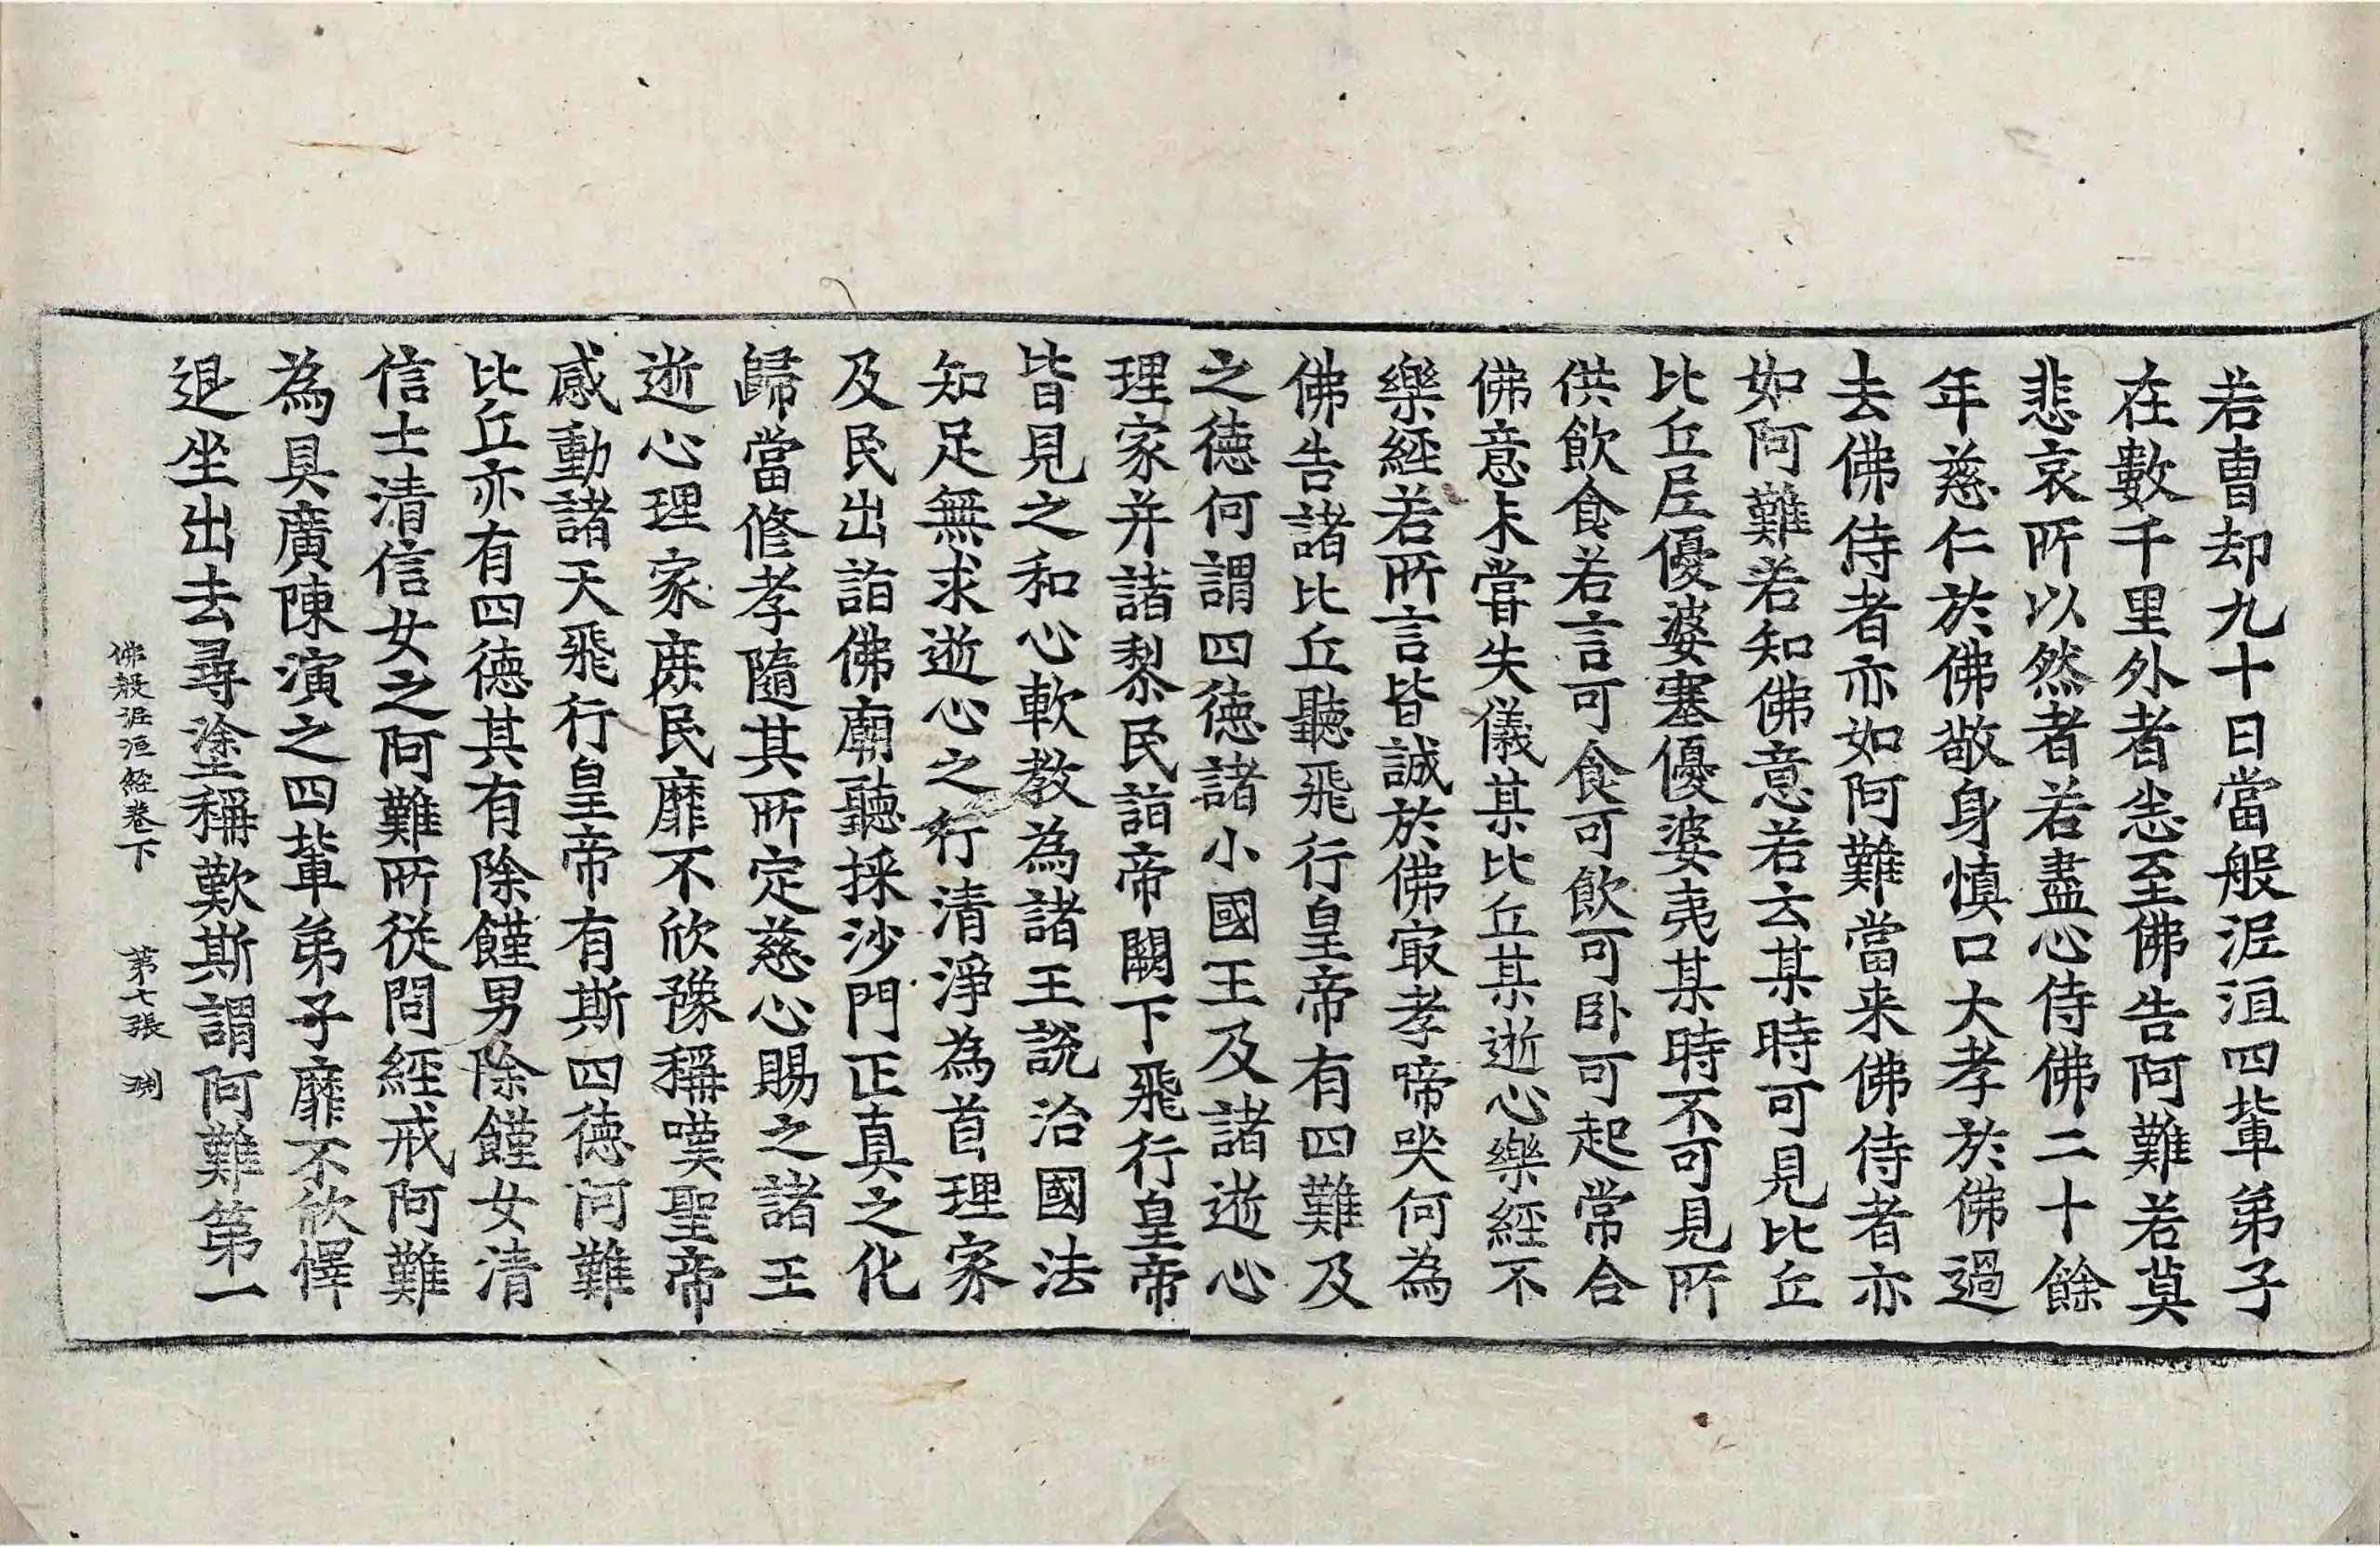 若曹却九十日當般泥洹四輩弟子
在數千里外者恙至佛告阿難若莫
悲哀所以然者若盡心侍佛二十餘
年慈仁於佛敬身慎口大孝於佛過
去佛侍者亦如阿難當来佛侍者亦
如阿難若知佛意若云某時可見比丘
比丘尼優婆塞優婆夷某時不可見所
供飲食若言可食可飲可卧可起常合
佛意未甞失儀某比丘某逝心樂經不
樂經若所言皆誠於佛冣孝啼哭何為
佛告諸比丘聽飛行皇帝有四難及
之德何謂四德諸小國王及諸逝心
理家并諸黎民詣帝闕下飛行皇帝
皆見之和心軟教為諸王說治國法
知足無求逝心之行清淨為首理家
及民出詣佛廟聽採沙門正真之化
歸當修孝隨其所定慈心賜之諸王
逝心理家庻民靡不欣豫稱嘆聖帝
感動諸天飛行皇帝有斯四德阿難
比丘亦有四德其有除饉男除饉女清
信士清信女之阿難所從問經戒阿難
為具廣陳演之四輩弟子靡不欣懌
退坐出去尋塗稱歎斯謂阿難第一
佛般泥洹經卷下 第七張